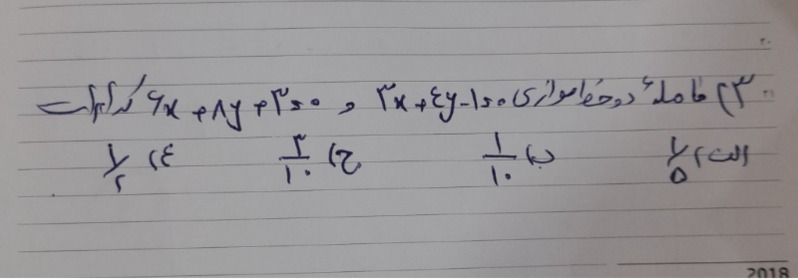 ۲۳) فاصلهٔ دو خط موازی ۳x+۴y-۱=۰ و ۶x+۸y+۳=۰ کدام است
الف) ۱/۵ ب) ۱/۱۰ ج) ۳/۱۰ ع) ۱/۲
2018